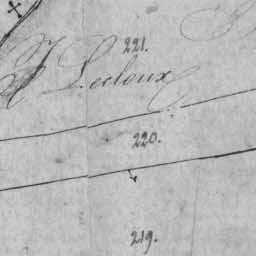 221.
Lecloux
220.
219.